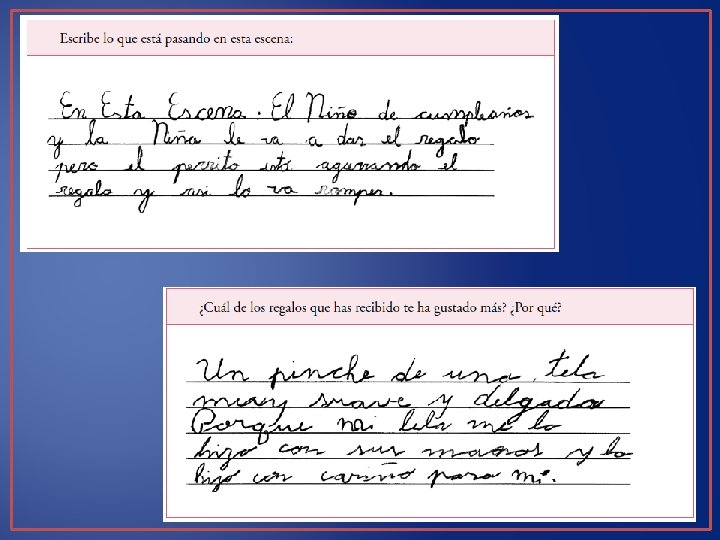 Escribe lo que está pasando en esta escena:
En Esta Escena. El Niño de cumpleaños
y la Niña le va a dar el regalo
pero el perrito está agarrando el
regalo y asi lo va romper.
¿Cuál de los regalos que has recibido te ha gustado más? ¿Por qué?
Un pinche de una tela
muy suave y delgada
Porque mi lela me lo
hizo con sus manos y lo
hizo con cariño para mi.